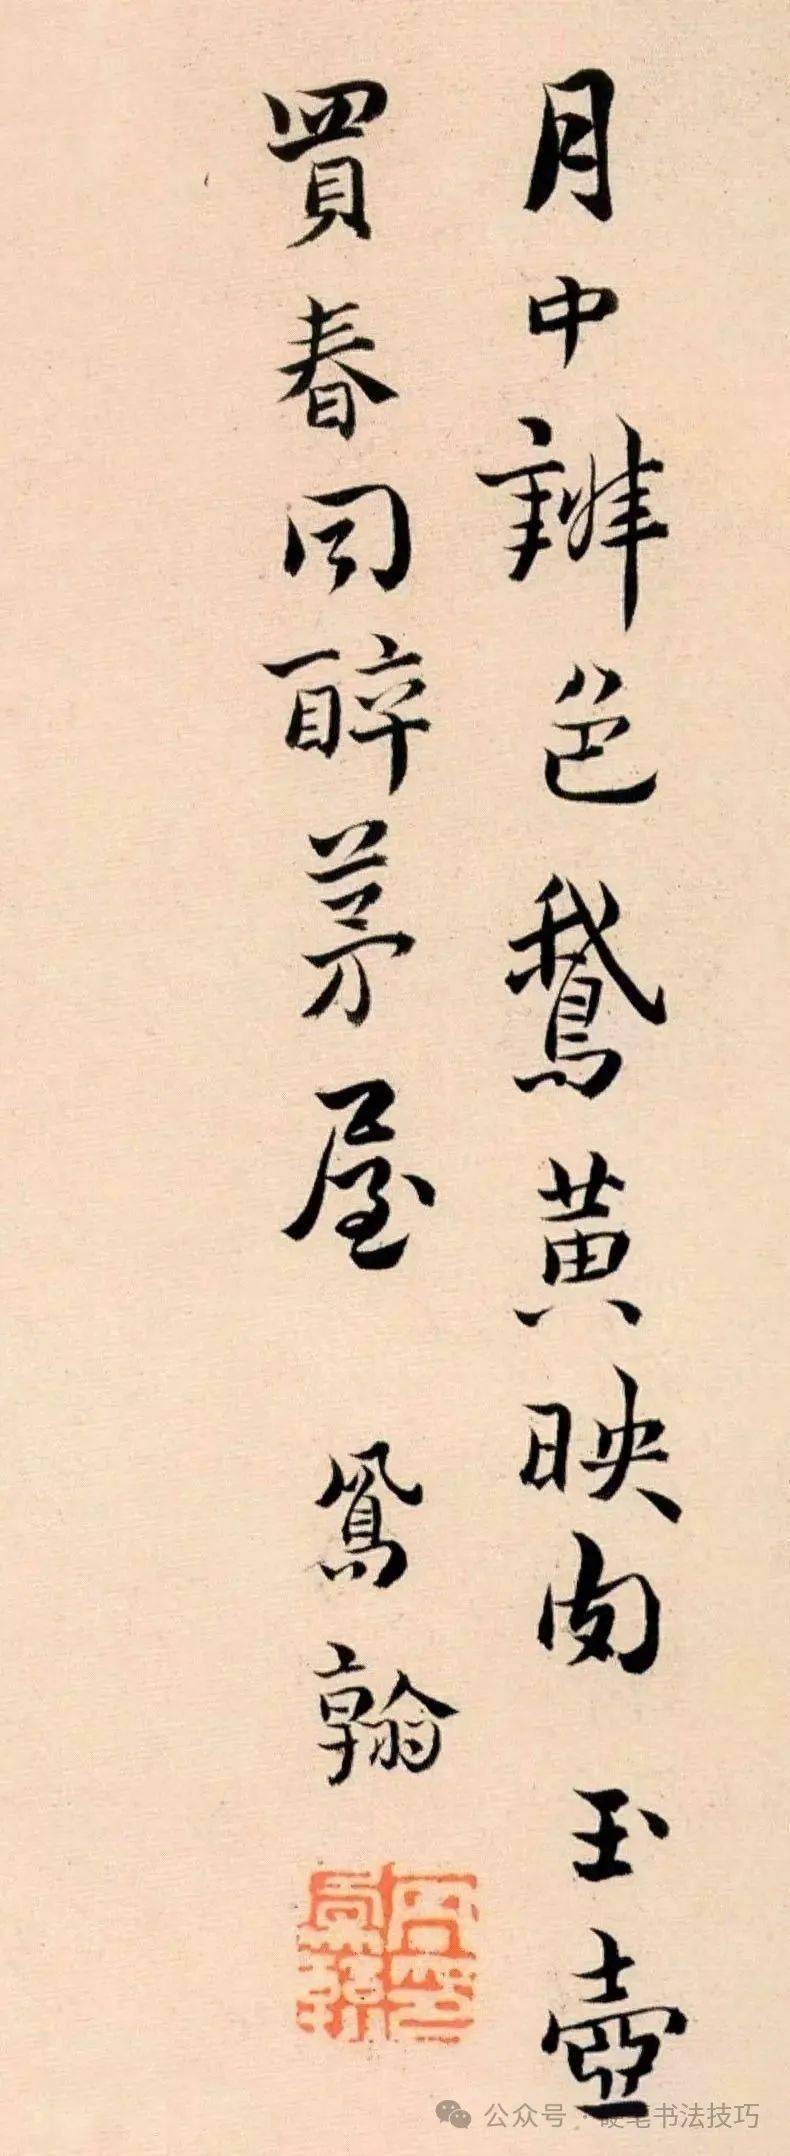 月中辨色鵝黃映肉玉壺
買春同醉茅屋 鳳翰
公众号·硬笔书法技巧